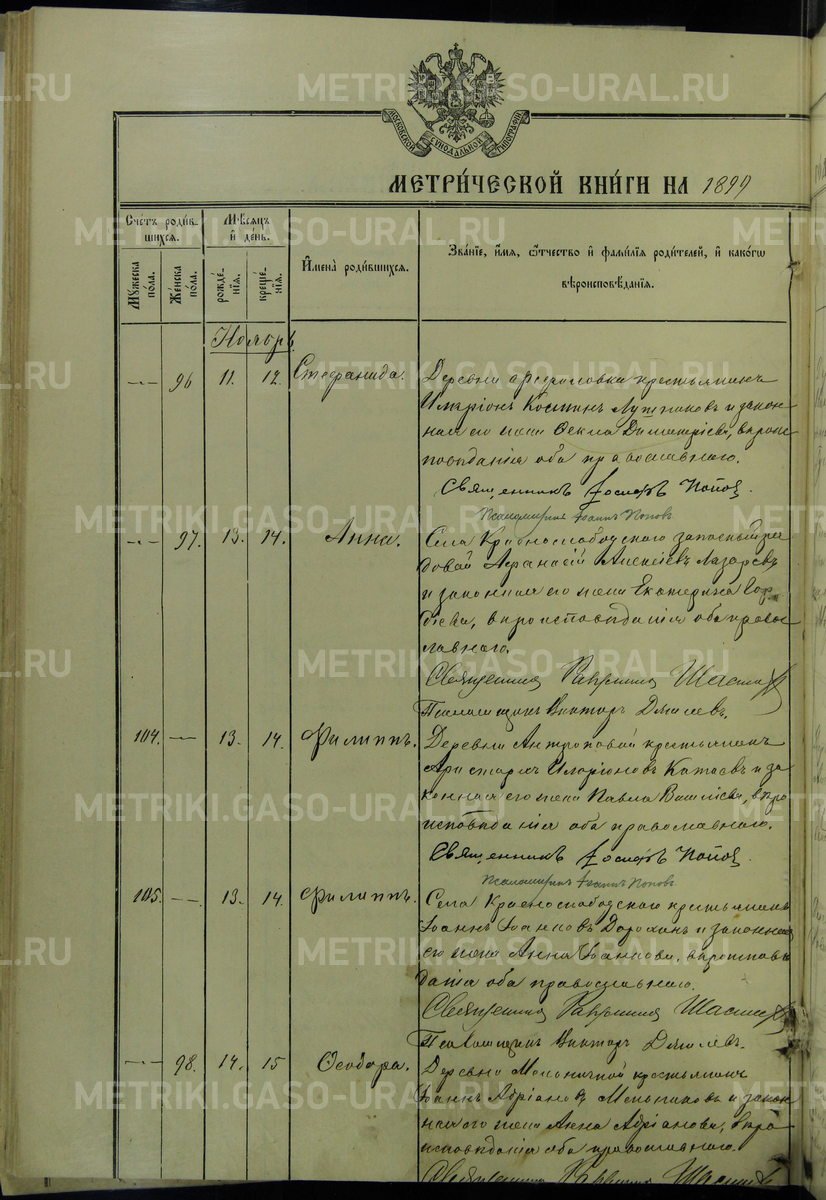 METRIKI.GASO-URAL.RU
МОСКОВСКОЙ СѴНОДАЛЬНОЙ ТИПОГРАФІИ
МЕТРИ́ЧЕСКОЙ КНИ́ГИ НА 1899
Сче́тъ роди́в-
шихся.
Му́жеска по́ла.
Же́нска по́ла.
Мѣ́сяцъ
и҆ де́нь.
рожде́-
нїѧ.
креще́-
нїѧ.
И҆мена̀ роди́вшихся.
Зва́нїе, и҆́мѧ, ѻ҆́тчество и҆ фами́лїѧ роди́телей, и҆ како́гѡ
вѣроисповѣ́данїѧ.
Ноябрь
— 96 11. 12. Стефанида.
Деревни крестьянинъ
Иларіонъ Костинъ и закон-
ная его жена Ѳекла Димитріева, вѣроис-
повѣданія оба православнаго.
Священникъ Іосифъ Попов
Псаломщикъ Іоаннъ Поповъ
— 97. 13. 14. Анна.
Села Краснослободского запасный ря-
довой Аѳанасій Алексѣевъ Лазаревъ
и законная его жена Екатерина
вѣроисповѣданія оба правос-
лавнаго.
Священникъ
Псаломщикъ Викторъ
104. — 13. 14. Филиппъ.
Деревни Антроповой крестьянинъ
Аристархъ Иларіоновъ Катаевъ и за-
конная его жена Павла вѣро-
исповѣданія оба православнаго.
Священникъ Іосифъ Попов
Псаломщикъ Іоаннъ Поповъ
105. — 13. 14. Филиппъ.
Села Краснослободского крестьянинъ
Іоаннъ Іоанновъ Дорохинъ и законная
его жена Анна Іоаннова, вѣроисповѣ-
данія оба православнаго.
Священникъ
Псаломщикъ Викторъ
— 98. 14. 15 Ѳеодора.
Деревни Мельничной крестьянинъ
Іоаннъ Адріановъ Мельниковъ и закон-
ная его жена Анна Адріанова, вѣро-
исповѣданія оба православнаго.
Священникъ